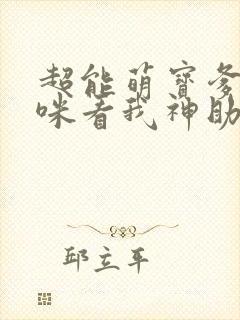 超能萌宝爹
咪看我神助
邱立平